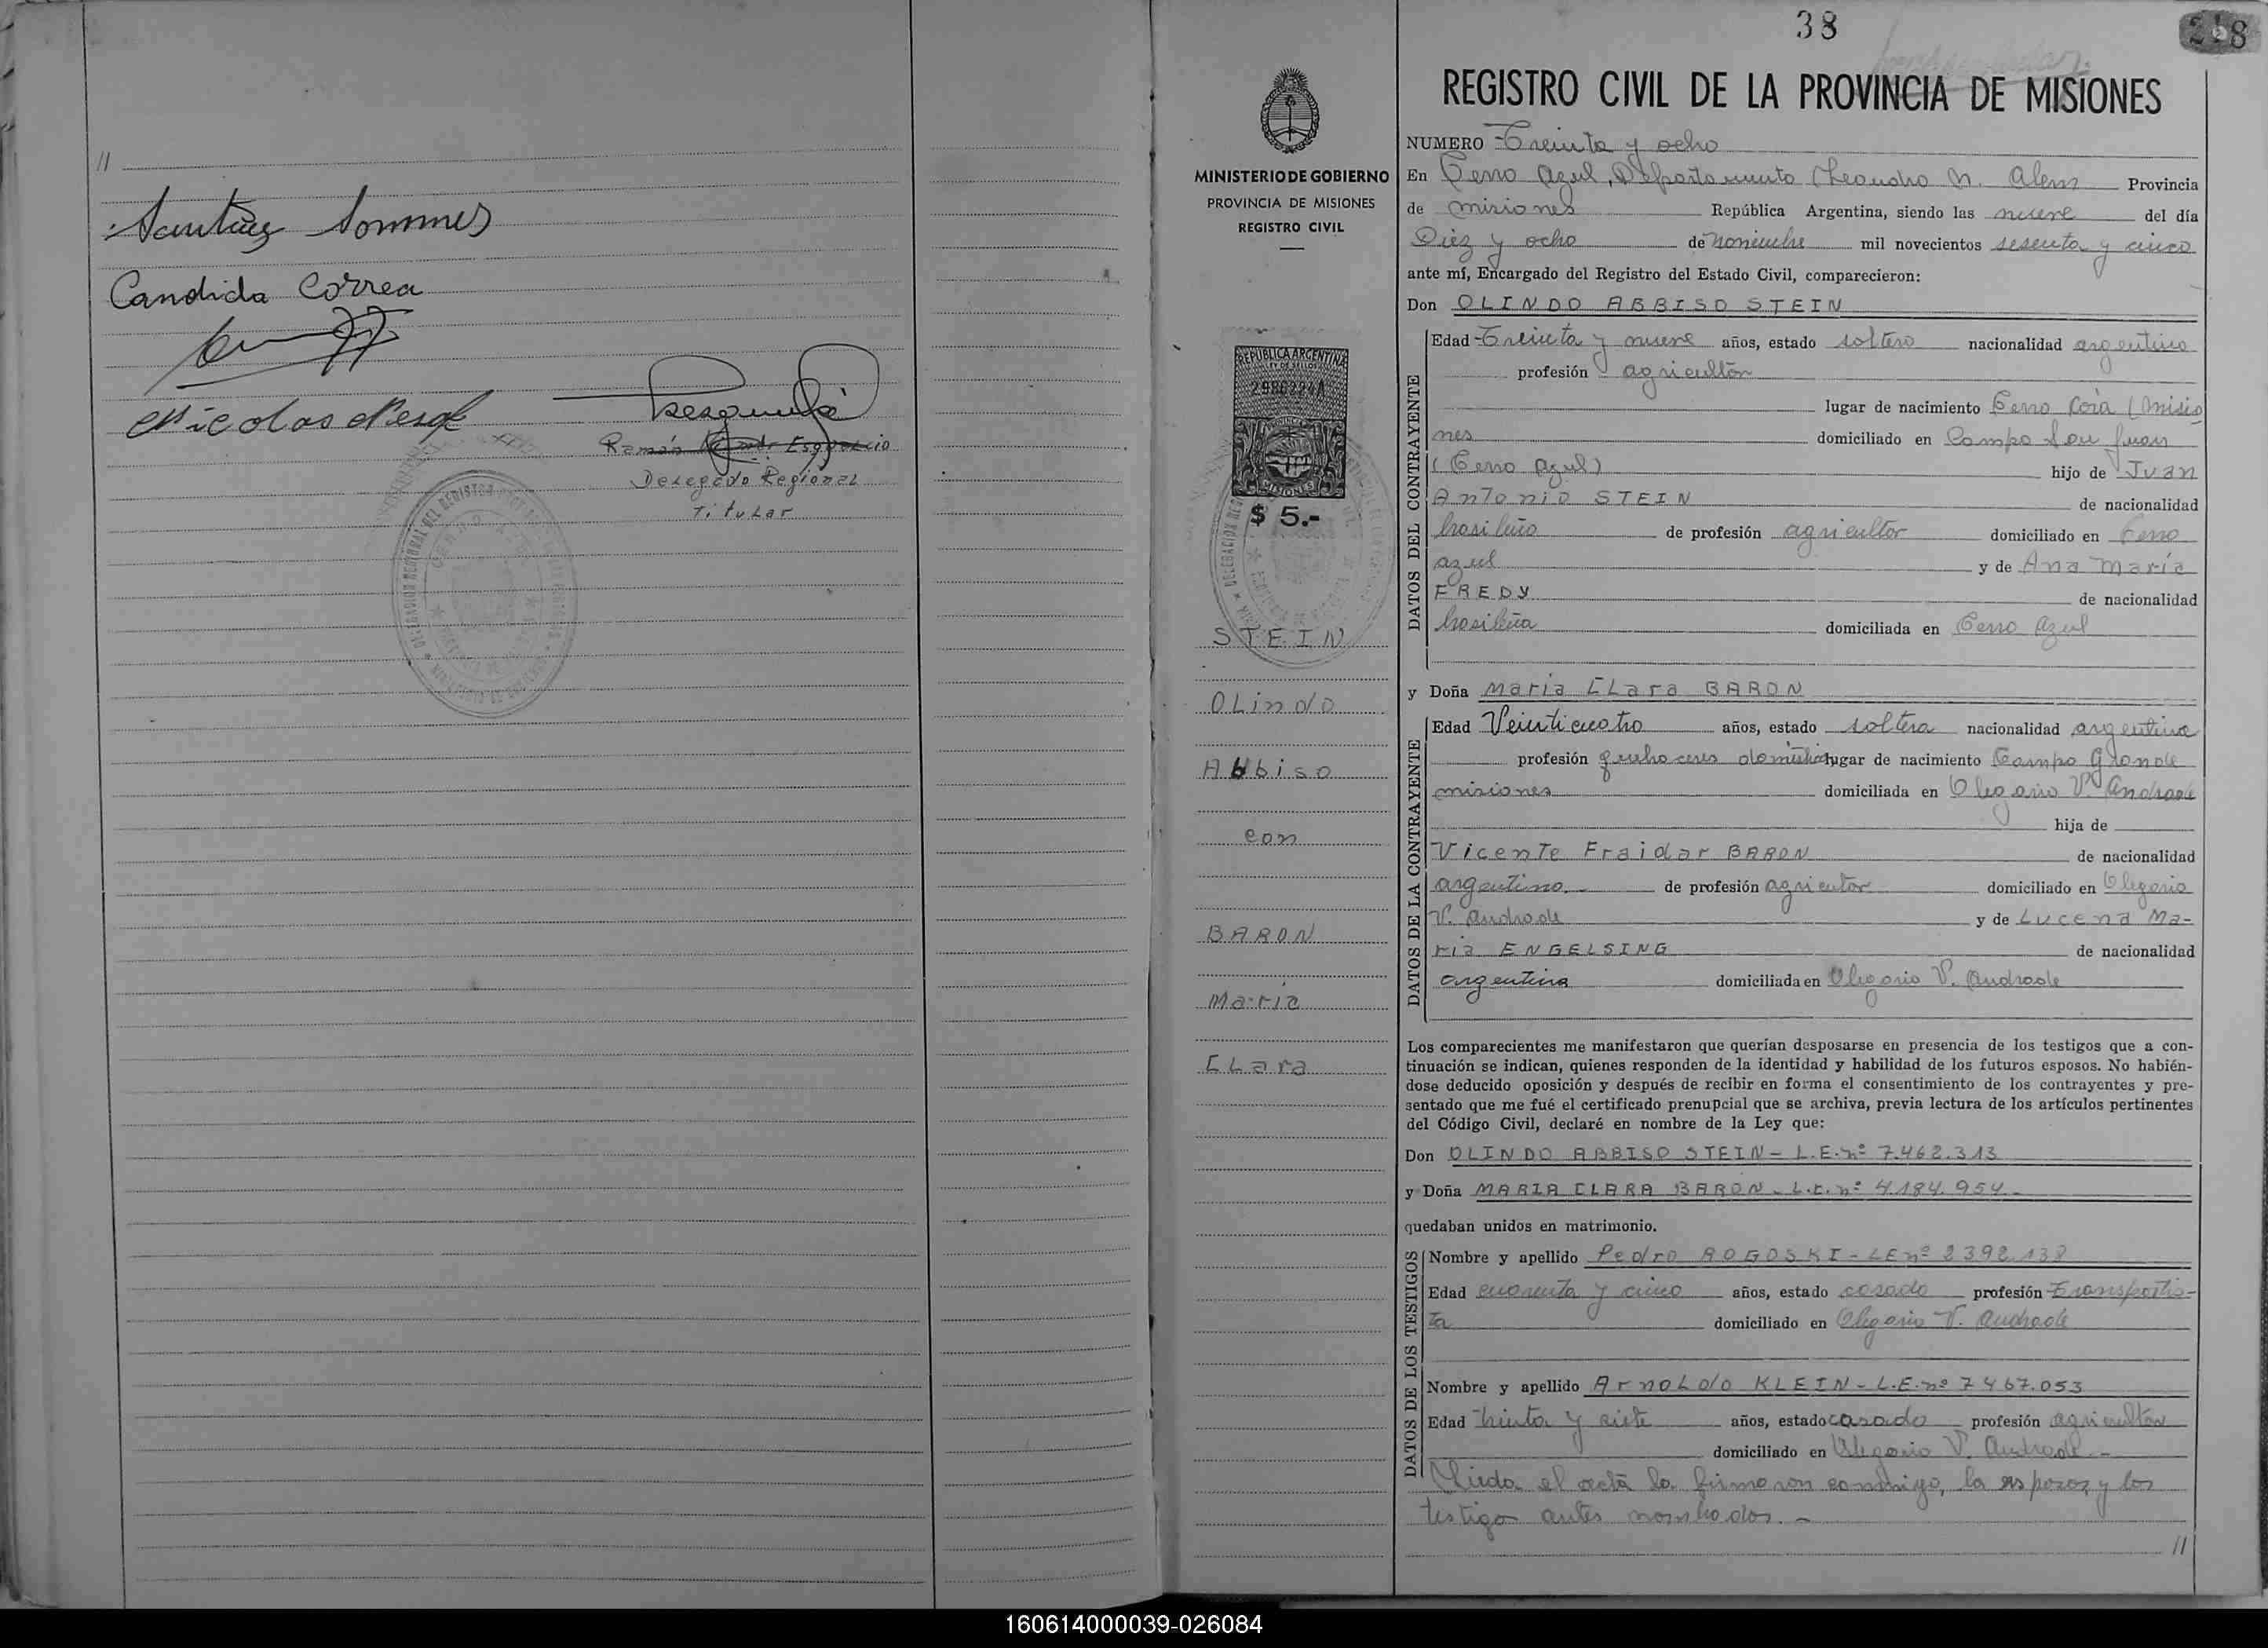 //
Candida Correa
Ramón
Delegado Regional
Titular
38
218
REGISTRO CIVIL DE LA PROVINCIA DE MISIONES
MINISTERIO DE GOBIERNO
PROVINCIA DE MISIONES
REGISTRO CIVIL
REPUBLICA ARGENTINA
LEY DE SELLOS
MISIONES
$ 5.-
STEIN
OLindo
Abbiso
con
BARON
María
CLara
NUMERO Treinta y ocho
En Cerro Azul, Departamento (Leandro N. Alem Provincia
de misiones República Argentina, siendo las nueve del día
Diez y ocho de noviembre mil novecientos sesenta y cinco
ante mí, Encargado del Registro del Estado Civil, comparecieron:
Don OLINDO ABBISO STEIN
DATOS DEL CONTRAYENTE
Edad Treinta y nueve años, estado soltero nacionalidad argentino
profesión agricultor
lugar de nacimiento Cerro Corá (Misio
nes domiciliado en Campo San Juan
(Cerro Azul) hijo de Juan
Antonio STEIN de nacionalidad
brasileño de profesión agricultor domiciliado en Cerro
azul y de Ana María
FREDY de nacionalidad
brasileña domiciliada en Cerro Azul
y Doña María CLara BARON
DATOS DE LA CONTRAYENTE
Edad Veinticuatro años, estado soltera nacionalidad argentina
profesión quehaceres domésticos lugar de nacimiento Campo Grande
misiones domiciliada en Olegario V. Andrade
hija de
Vicente Fraidar BARON de nacionalidad
argentino.- de profesión agricultor domiciliado en Olegario
V. Andrade y de Lucena Ma-
ria ENGELSING de nacionalidad
argentina domiciliada en Olegario V. Andrade
Los comparecientes me manifestaron que querían desposarse en presencia de los testigos que a con-
tinuación se indican, quienes responden de la identidad y habilidad de los futuros esposos. No habién-
dose deducido oposición y después de recibir en forma el consentimiento de los contrayentes y pre-
sentado que me fué el certificado prenupcial que se archiva, previa lectura de los artículos pertinentes
del Código Civil, declaré en nombre de la Ley que:
Don OLINDO ABBISO STEIN - L.E.nº 7.462.313
y Doña MARIA CLARA BARON - L.C.nº 4.184.954.-
quedaban unidos en matrimonio.
DATOS DE LOS TESTIGOS
Nombre y apellido Pedro ROGOSKI - LE nº 2392.138
Edad cuarenta y cinco años, estado casado profesión transportis-
ta domiciliado en Olegario V. Andrade
Nombre y apellido ArnoLdo KLEIN - L.E.nº 7467.053
Edad treinta y siete años, estado casado profesión agricultor
domiciliado en Olegario V. Andrade.-
Leida el acta la firmaron conmigo, los esposos y los
testigo antes nombrados.-
//
160614000039-026084